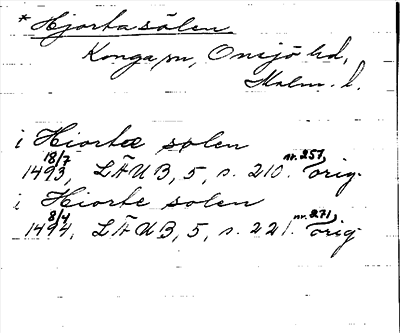 * Hjortasölen
Konga sn, Onsjö hd,
Malm. l.
i Hiorte solen
18/7 1493, LÄUB, 5, s. 210. nr. 257, orig.
i Hiorte solen
8/4 1494, LÄUB, 5, s. 221. nr. 271, orig